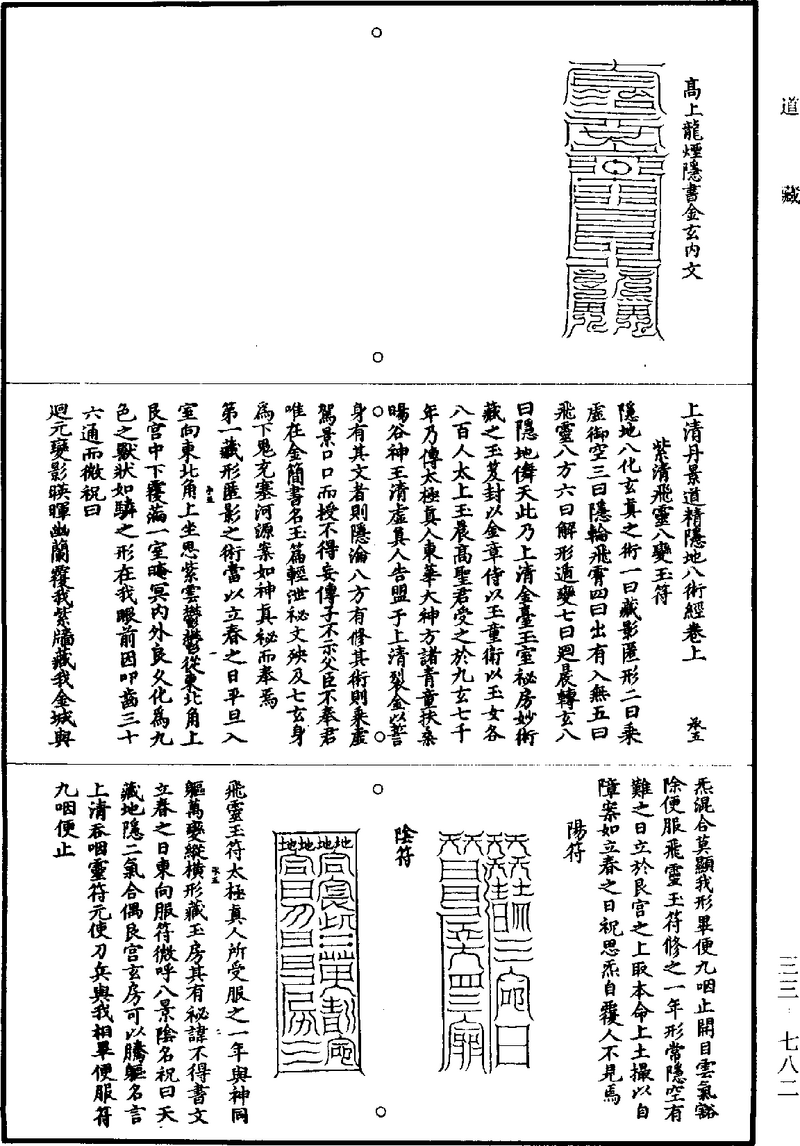 道藏
高上龍煙隱書金玄內文
上清丹景道精隱地八術經卷上
承五
紫清飛靈八變玉符
隱地八化玄真之術一曰藏影匿形二曰乘
虛御空三曰隱輪飛霄四曰出有入無五曰
飛靈八方六曰解形遁變七曰迴晨轉玄八
曰隱地儛天此乃上清金臺玉室祕房妙術
藏之玉笈封以金章侍以玉童衛以玉女各
八百人太上玉晨高聖君受之於九玄七千
年乃傳太極真人東華大神方諸青童扶桑
暘谷神王清虛真人告盟于上清裂金以誓
身有其文者則隱淪八方有修其術則乘虛
駕景口口而授不得妄傳子不示父臣不奉君
唯在金簡書名玉篇輕泄祕文殃及七玄身
為下鬼充塞河源案如神真祕而奉焉
第一藏形匿影之術當以立春之日平旦入
室向東北角上坐思紫雲鬱鬱從東北角上
艮宮中下覆滿一室晻冥內外良久化為九
色之獸狀如驎之形在我眼前因叩齒三十
六通而微祝曰
迴元變影晱暉幽蘭覆我紫牆藏我金城與
炁混合莫顯我形畢便九咽止開目雲氣豁
除便服飛靈玉符修之一年形常隱空有
難之日立於艮宮之上取本命上土撮以自
障案如立春之日祝思炁自覆人不見焉
陽符
陰符
飛靈玉符太極真人所受服之一年與神同
軀萬變縱橫形藏玉房其有祕諱不得書文
立春之日東向服符微呼八景陰名祝曰天
藏地隱二氣合偶艮宮玄房可以騰軀名言
上清吞咽靈符元使刀兵與我相畢便服符
九咽便止
三三·七八二